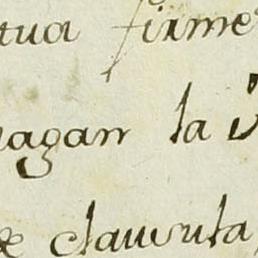 tua firme
agan la
clausula